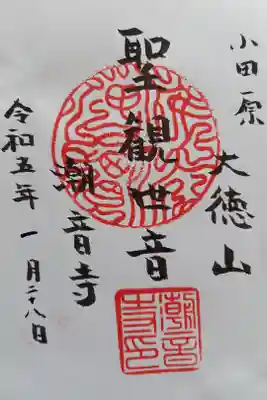 小田原
大徳山
聖観世音
潮音寺
令和五年 一月二十八日
潮音
寺印